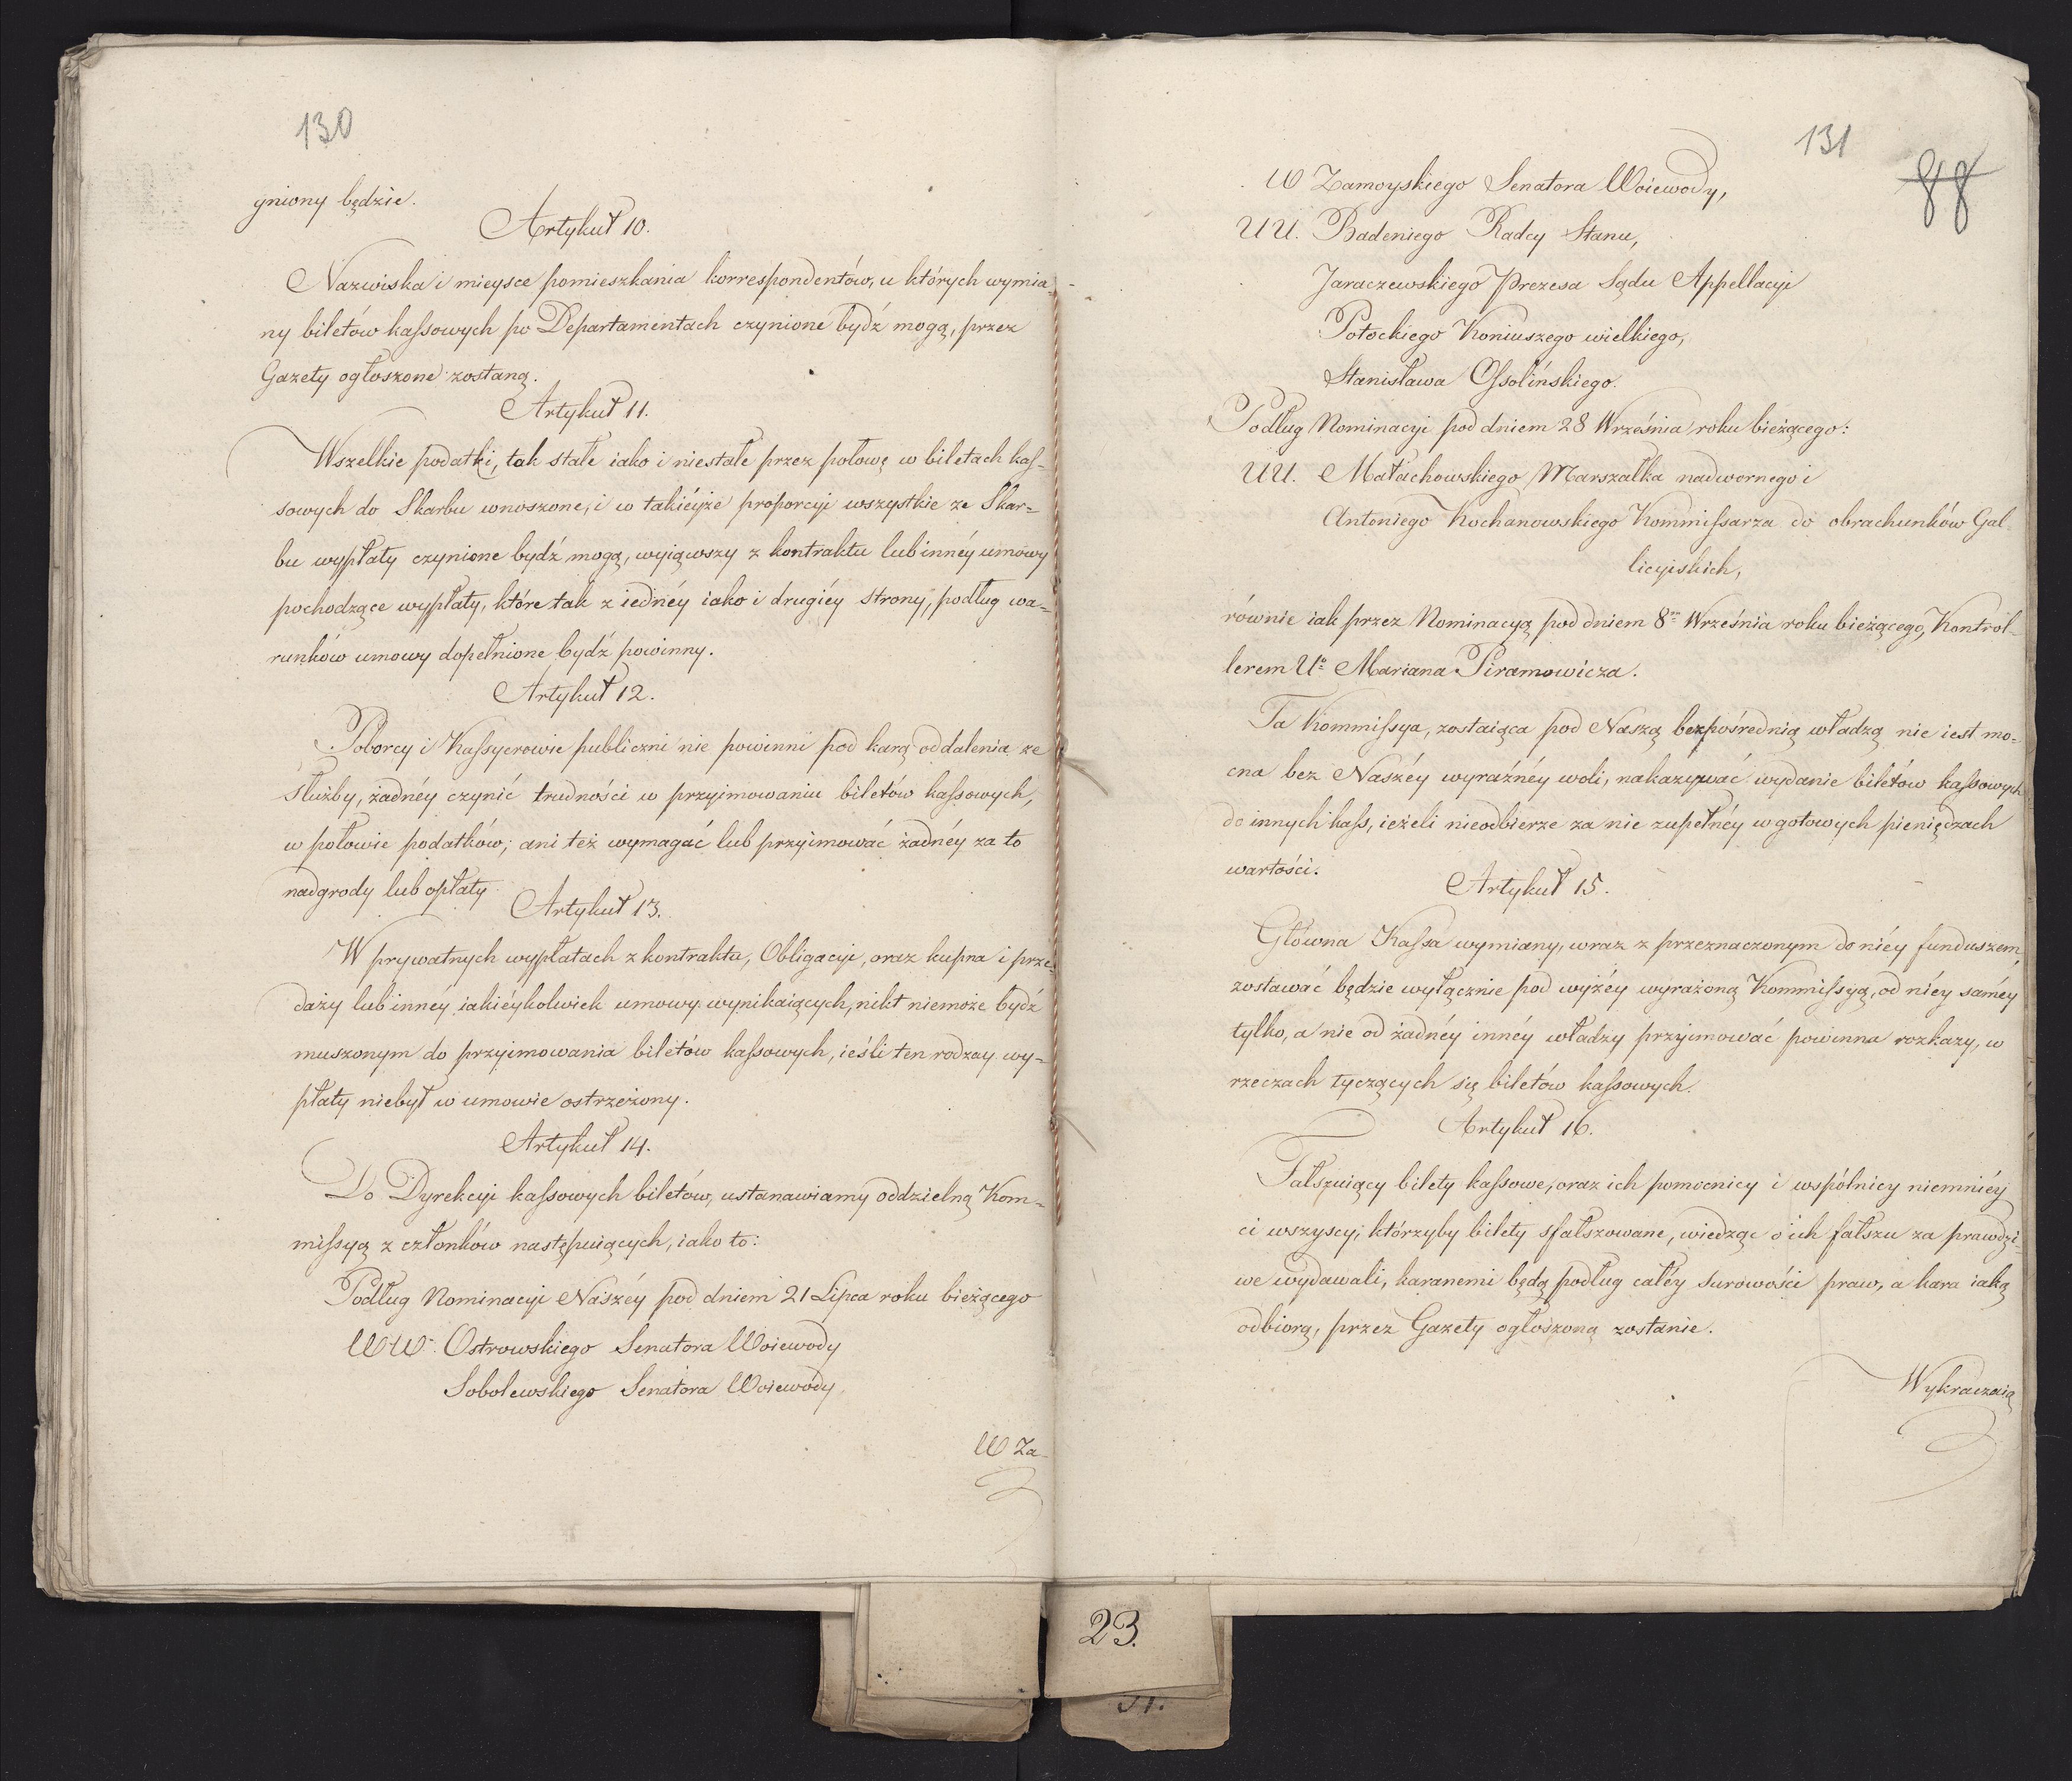 130
gniony będzie.
Artykuł 10.
Nazwiska i mieysce pomieszkania korrespondentów, u których wymia-
ny biletów kassowych po Departamentach czynione bydź mogą, przez
Gazety ogłoszone zostaną.
Artykuł 11.
Wszelkie podatki, tak stałe iako i niestałe przez połowę w biletach kas-
sowych do Skarbu wnoszone, i w takiéyże proporcyi wszystkie ze Skar=
bu wypłaty czynione bydź mogą, wyiąwszy z kontraktu lub innéy umowy
pochodzące wypłaty, które tak z iednéy iako i drugiéy strony, podług wa=
runków umowy dopełnione bydź powinny.
Artykuł 12.
Poborcy i Kassyerowie publiczni nie powinni pod karą oddalenia ze
służby, żadnéy czynić trudności w przyimowaniu biletów kassowych,
w połowie podatków; ani też wymagać lub przyimować żadnéy za to
nadgrody lub opłaty.
Artykuł 13.
W prywatnych wypłatach z kontraktu, Obligacyi, oraz kupna i prze=
daży lub innéy iakiéykolwiek umowy wynikaiących, nikt niemoże bydź
muszonym do przyimowania biletów kassowych, ieśli ten rodzay wy=
płaty niebył w umowie ostrzeżony.
Artykuł 14.
Do Dyrekcyi kassowych biletów, ustanawiamy oddzielną Kom=
missyą z członków następuiących, iako to:
Podług Nominacyi Naszéy pod dniem 21 Lipca roku bieżącego
WW. Ostrowskiego Senatora Woiewody
Sobolewskiego Senatora Woiewody,
W Za-
131
88
W Zamoyskiego Senatora Woiewody,
UU. Badeniego Radcy Stanu,
Jaraczewskiego Prezesa Sądu Appellacyi
Potockiego Koniuszego wielkiego,
Stanisława Ossolińskiego.
Podług Nominacyi pod dniem 28 Września roku bieżącego:
UU. Małachowskiego Marszałka nadwornego i
Antoniego Kochanowskiego Kommissarza do obrachunków Gal
licyiskich,
równie iak przez Nominacyą pod dniem 8m Września roku bieżącego, Kontrol-
lerem Uo Mariana Piramowicza.
Ta Kommissya, zostaiąca pod Naszą bezpośrednią władzą nie iest mo=
cna bez Naszéy wyraźnéy woli, nakazywać wydanie biletów kassowych
do innych kass, ieżeli nieodbierze za nie zupełnéy w gotowych pieniędzach
wartości.
Artykuł 15.
Główna Kassa wymiany, wraz z przeznaczonym do niéy funduszem,
zostawać będzie wyłącznie pod wyżéy wyrażoną Kommissyą, od niéy saméy
tylko, a nie od żadnéy innéy władzy przyimować powinna rozkazy, w
rzeczach tyczących się biletów kassowych.
Artykuł 16.
Fałszuiący bilety kassowe, oraz ich pomocnicy i wspólnicy niemniéy
ci wszyscy, którzyby bilety sfałszowane, wiedząc o ich fałszu za prawdzi-
we wydawali, karanemi będą podług całéy surowości praw, a kara iaką
odbiorą, przez Gazety ogłoszoną zostanie.
Wykraczaią
23.